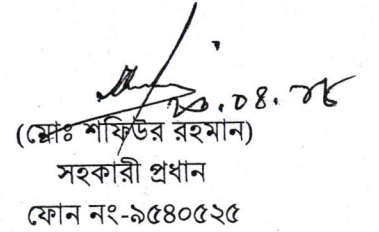 (মোঃ শফিউর রহমান)
সহকারী প্রধান
ফোন নং-৯৫৪০৫২৫